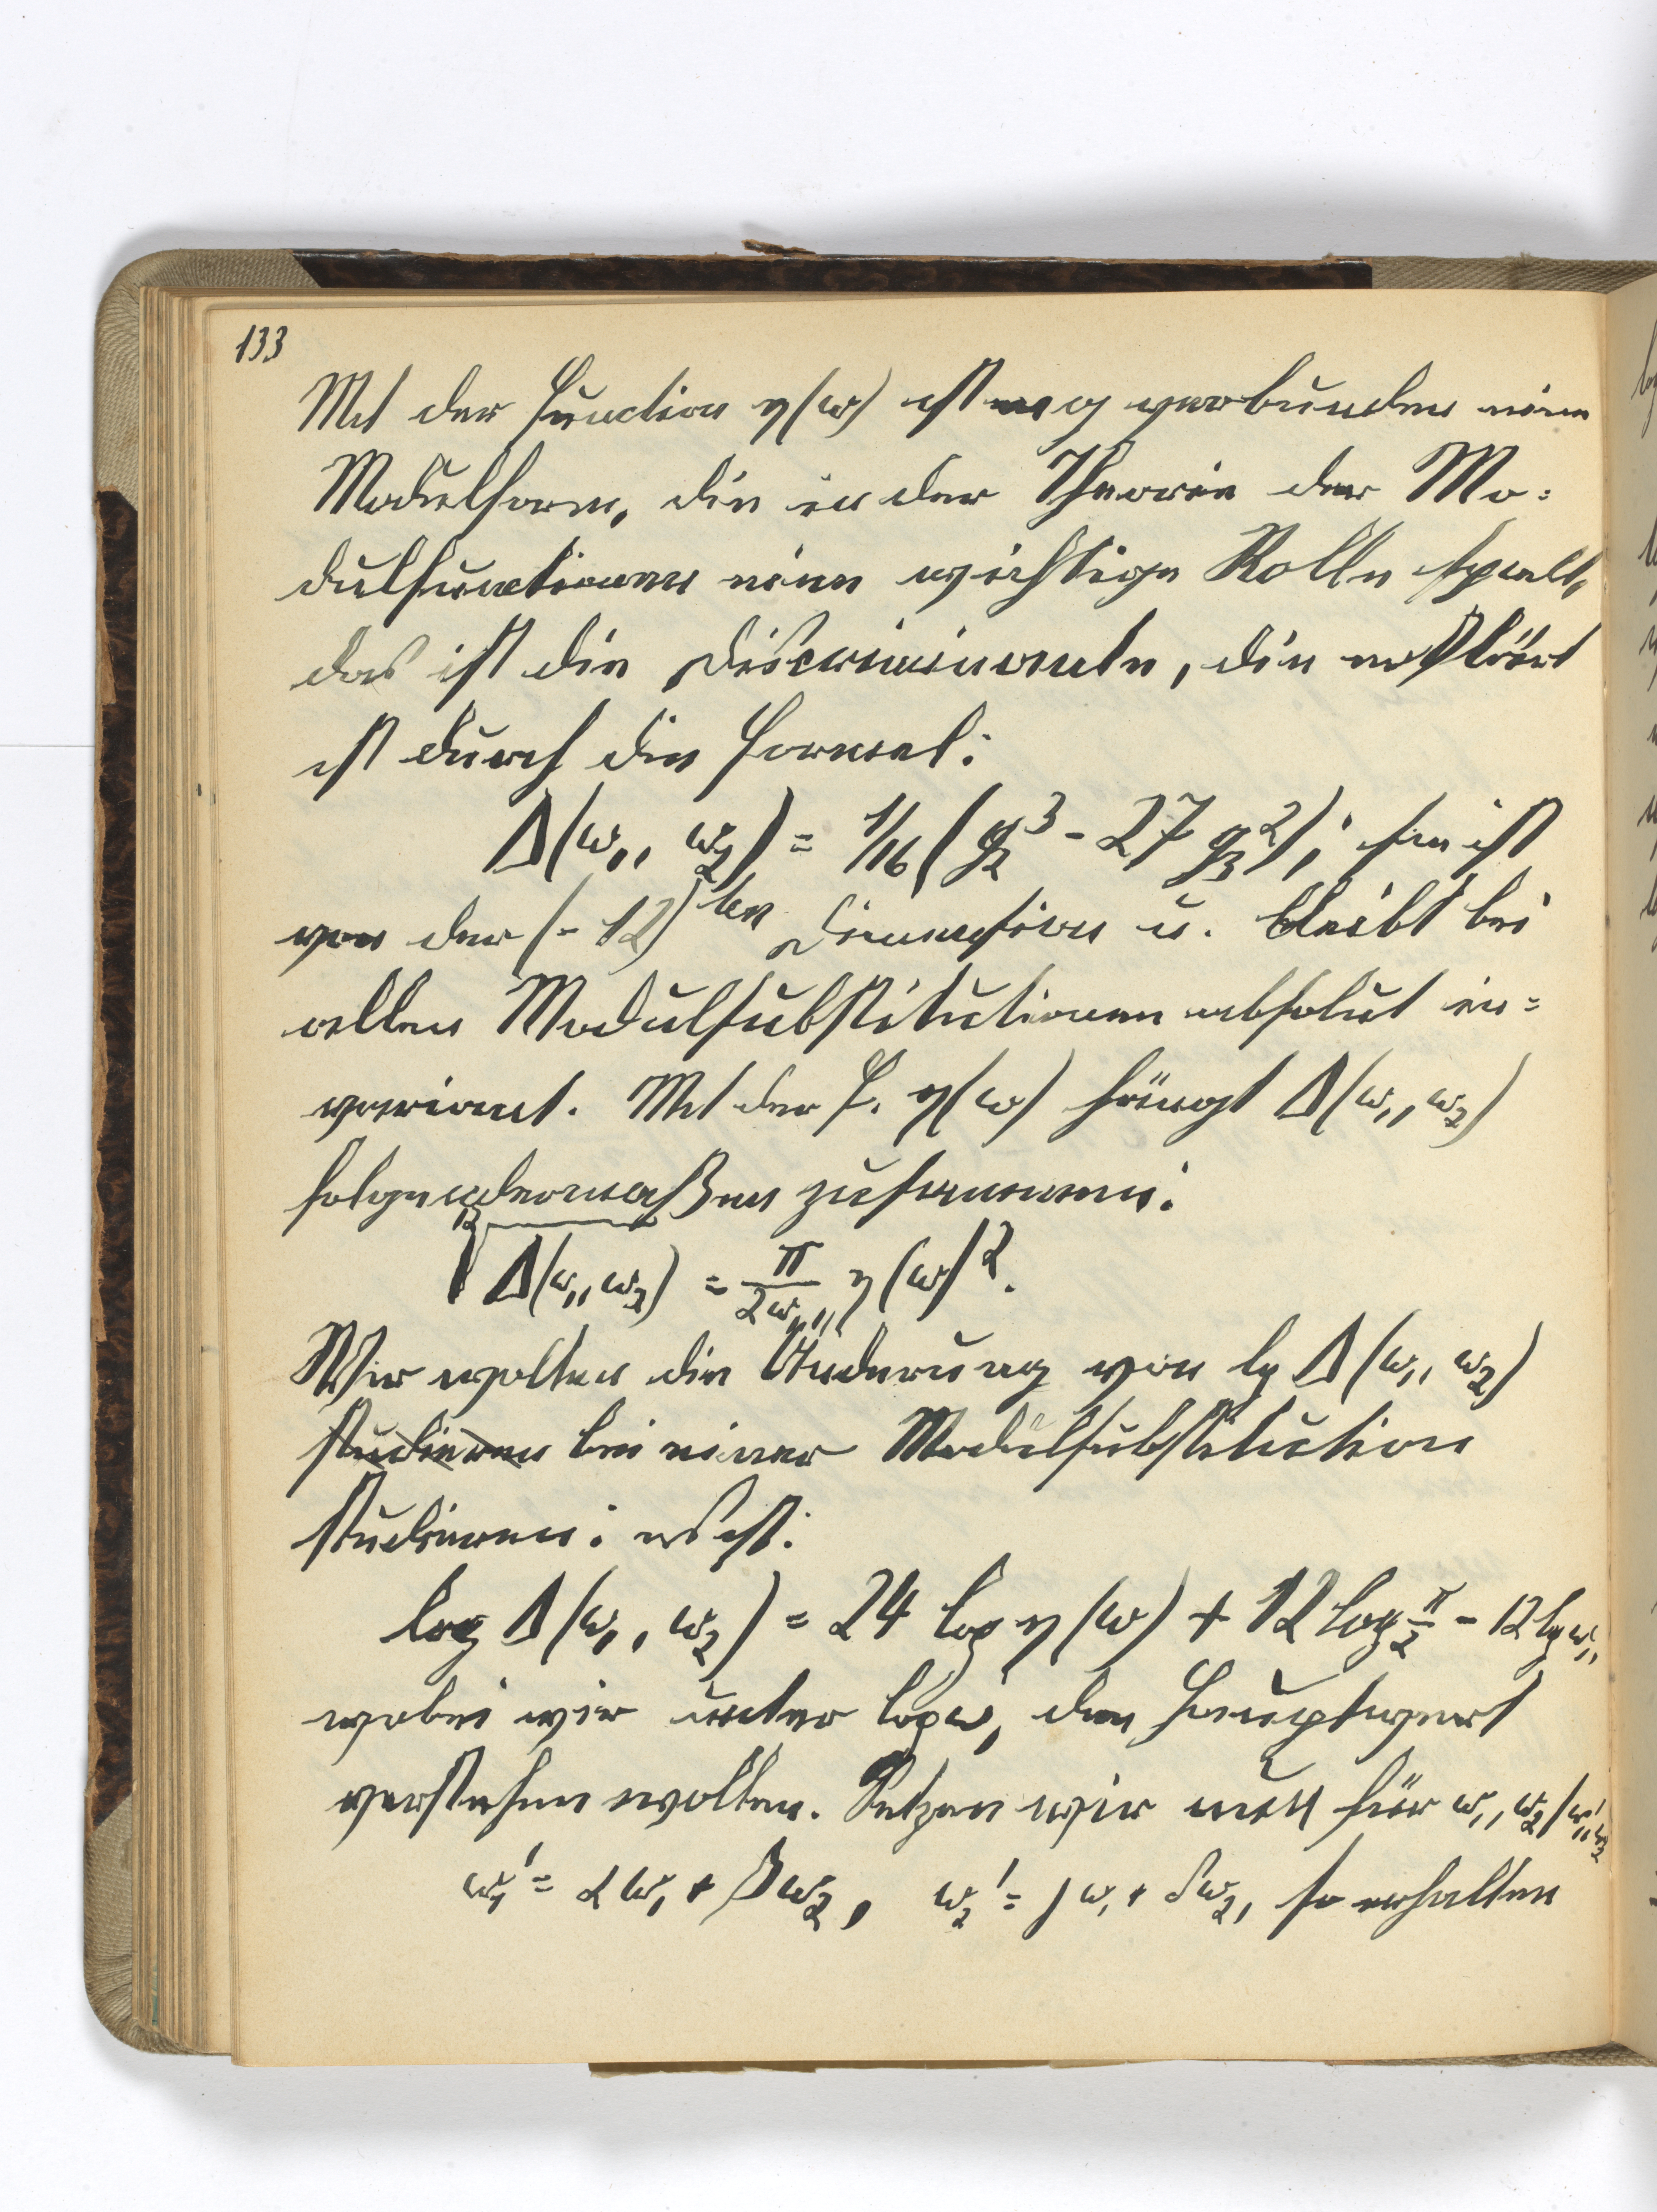 133
Mit der Function η(ω) ist eng verbunden eine
Modulform, die in der Theorie der Mo=
dulfunctionen eine wichtige Rolle spielt,
das ist die Discriminante, die erklärt
ist durch die Formel:
Δ(ω₁, ω₂) = 1/16 (g₂³ - 27 g₃²); sie ist
von der (-12)ten Dimension u. bleibt bei
allen Modulsubstitutionen absolut in=
variant. Mit der F. η(ω) hängt Δ(ω₁, ω₂)
folgendermaßen zusammen:
¹²√Δ(ω₁, ω₂) = π/2ω₁ η(ω)².
Wir wollen die Änderung von lg Δ(ω₁, ω₂)
studieren bei einer Modulsubstitution
studieren: es ist:
log Δ(ω₁, ω₂) = 24 log η(ω) + 12 log π/2 - 12 lg ω₁,
wobei wir unter log ω₁ den Hauptwert
verstehen wollen. Setzen wir nun für ω₁, ω₂ / ω₁', ω₂'
ω₁' = αω₁ + βω₂, ω₂' = γω₁ + δω₂, so erhalten